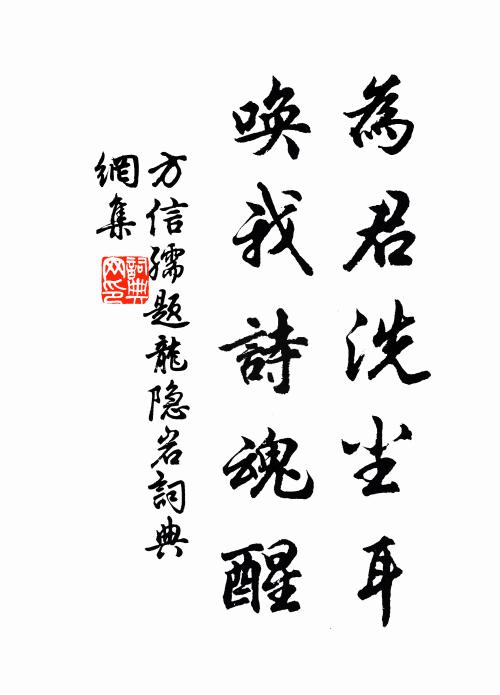 為君洗尘耳
唤我詩魂醒
方信孺题龍隐岩詞典
網集
詞典
网印